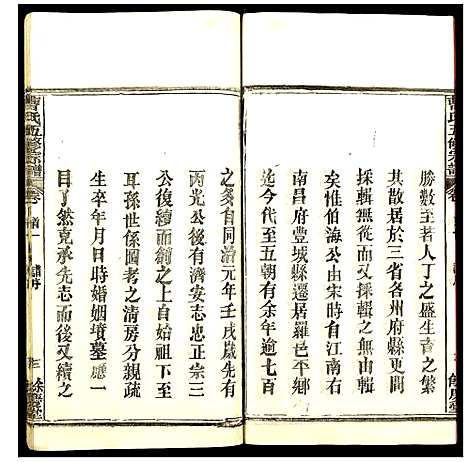 勝數至若人丁之盛生育之繁
其散居於三省各州府縣更問
採輯無從而又無由輯
矣惟伯海公由宋時有江南
南昌府豐城縣遷居羅邑平鄉
迄今代至五朝有餘年逾七百
之多自同治元年壬戌歲先有
丙光公後有濟安志忠正宗三
公復續而續之上自始祖下至
耳孫世係圖考之清房分親疏
生卒年月日時婚姻墳墓應一
目了然克承先志而後又續之
曹氏五修宗譜
卷首
餘慶堂
曹氏五修宗譜
餘慶堂